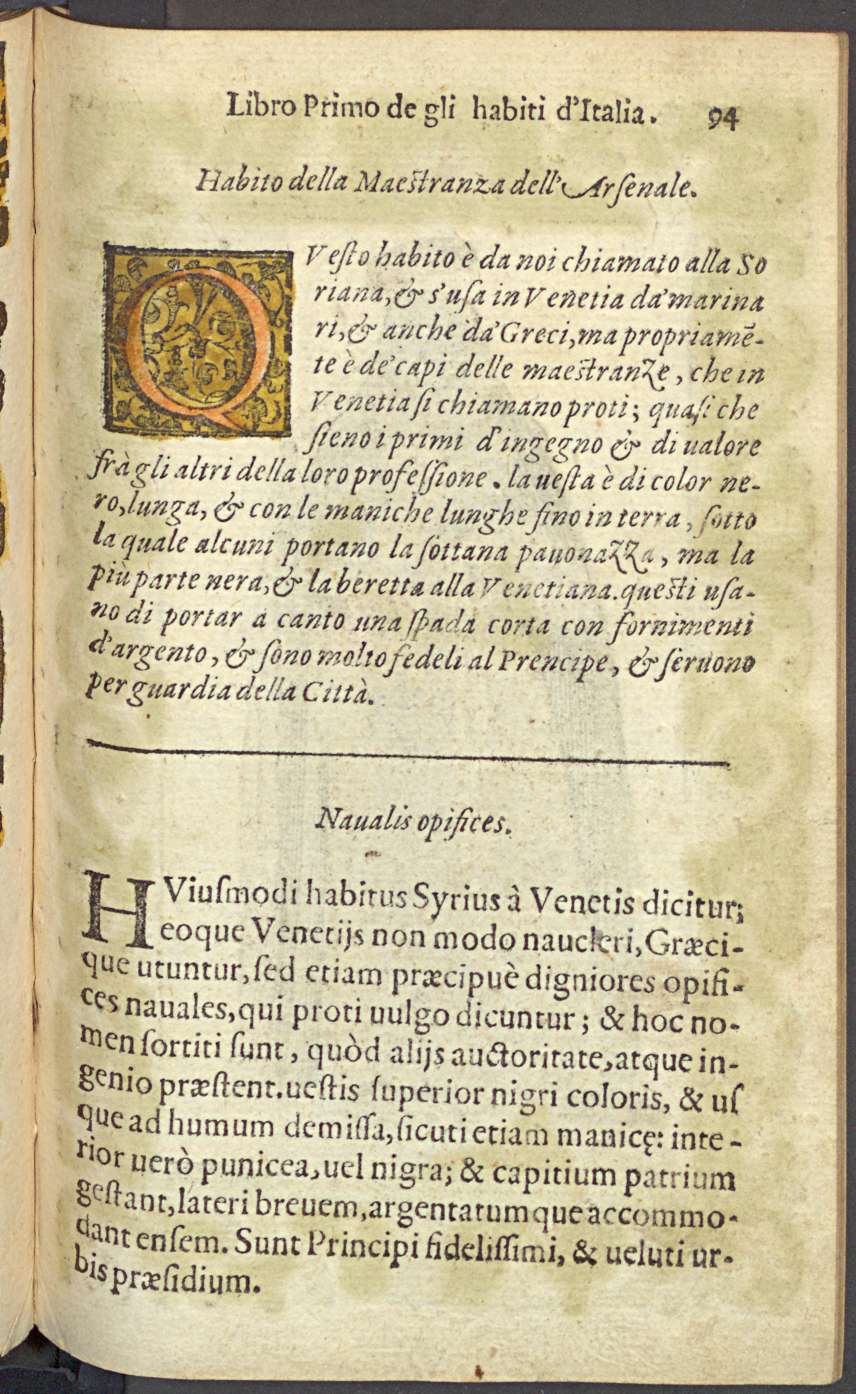 Libro Primo de gli habiti d'Italia. 94
Habito della Maeſtranza dell'Arſenale.
QVeſto habito è da noi chiamato alla So
riana, & s'uſa in Venetia da' marina
ri, & anche da' Greci, ma propriamẽ-
te è de' capi delle maeſtranze, che in
Venetia ſi chiamano proti; quaſi che
ſieno i primi d'ingegno & di ualore
frà gli altri della loro profeſſione. la ueſta è di color ne-
ro, lunga, & con le maniche lunghe fino in terra, ſotto
la quale alcuni portano la ſottana pauonazza, ma la
più parte nera, & la beretta alla Venetiana. queſti uſa-
no di portar a canto una ſpada corta con fornimenti
d'argento, & ſono molto fedeli al Prencipe, & ſeruono
per guardia della Città.
Naualis opifices.
HViuſmodi habitus Syrius à Venetis dicitur;
eoque Venetijs non modo naucleri, Græci-
que utuntur, ſed etiam præcipuè digniores opifi-
ces nauales, qui proti uulgo dicuntur; & hoc no-
men ſortiti ſunt, quòd alijs auctoritate, atque in-
genio præſtent. ueſtis ſuperior nigri coloris, & uſ
que ad humum demiſſa, ſicuti etiam manicę: inte-
rior uerò punicea, uel nigra; & capitium patrium
geſtant, lateri breuem, argentatumque accommo-
dant enſem. Sunt Principi fideliſſimi, & ueluti ur-
bis præſidium.